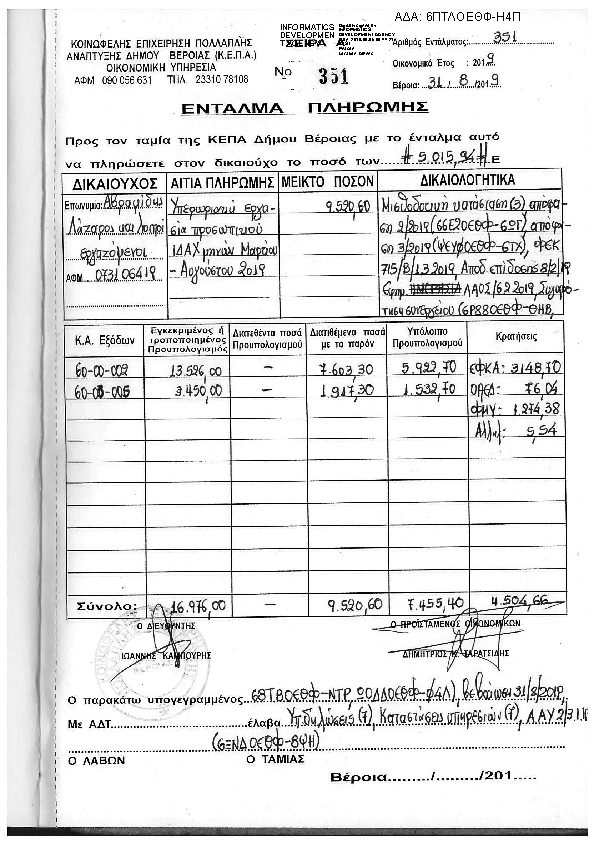 ΑΔΑ: 6ΠΤΛΟΕΘΦ-Η4Π
INFORMATICS
DEVELOPMENT AGENCY
ΣΕΙΡΑ Α
ΚΟΙΝΩΦΕΛΗΣ ΕΠΙΧΕΙΡΗΣΗ ΠΟΛΛΑΠΛΗΣ
ΑΝΑΠΤΥΞΗΣ ΔΗΜΟΥ ΒΕΡΟΙΑΣ (Κ.Ε.Π.Α.)
ΟΙΚΟΝΟΜΙΚΗ ΥΠΗΡΕΣΙΑ
ΑΦΜ 090 056 631 ΤΗΛ 23310 78108
Νο 351
Αριθμός Εντάλματος: 351
Οικονομικό Έτος : 2019
Βέροια: 31/8/2019
ΕΝΤΑΛΜΑ ΠΛΗΡΩΜΗΣ
Προς τον ταμία της ΚΕΠΑ Δήμου Βέροιας με το ένταλμα αυτό
να πληρώσετε στον δικαιούχο το ποσό των #5.015,94# Ε
ΔΙΚΑΙΟΥΧΟΣ ΑΙΤΙΑ ΠΛΗΡΩΜΗΣ ΜΕΙΚΤΟ ΠΟΣΟΝ ΔΙΚΑΙΟΛΟΓΗΤΙΚΑ
Επωνυμία: Αβραμίδης
Λάζαρος και λοιποί
εργαζόμενοι
ΑΦΜ 073106419
Υπερωριακή εργα-
σία προσωπικού
ΙΔΑΧ μηνών Μαρτίου
- Αυγούστου 2019
9.520,60
Μισθοδοτική κατάσταση (3) απόφα-
ση 2/2019 (66Ε2ΟΕΘΦ-6ΩΓ) απόφα-
ση 3/2019 (ΨΕΥΡΟΕΘΦ-6ΤΧ), ΦΕΚ
715/Β/1.3.2019, Αποδ. επίδοσης 8/2/19
ΛΑΟΣ/6.2.2019,
(6Ρ88ΟΕΘΦ-ΘΗΒ,
Κ.Α. Εξόδων Εγκεκριμένος ή τροποποιημένος Προυπολογισμός Διατεθέντα ποσά Προυπολογισμού Διατιθέμενα ποσά με το παρόν Υπόλοιπο Προυπολογισμού Κρατήσεις
60-00-002 13.526,00 – 7.603,30 5.922,70 ΕΦΚΑ: 3148,70
60-03-005 3.450,00 – 1.917,30 1.532,70 ΟΑΕΔ: 76,04
ΦΜΥ: 1.274,38
Αλληλ: 5,54
Σύνολο: 16.976,00 – 9.520,60 7.455,40 4.504,66
Ο ΔΙΕΥΘΥΝΤΗΣ
Ο ΠΡΟΪΣΤΑΜΕΝΟΣ ΟΙΚΟΝΟΜΙΚΩΝ
ΙΩΑΝΝΗΣ ΚΑΜΠΟΥΡΗΣ
ΔΗΜΗΤΡΙΟΣ Κ. ΣΑΡΑΤΣΙΔΗΣ
Ο παρακάτω υπογεγραμμένος 68Τ8ΟΕΘΦ-ΝΤΡ, ΩΟΔΔΟΕΘΦ-Φ4Λ), βεβαίωση 31/8/2019,
Με ΑΔΤ έλαβα Υπ. Δηλώσεις (7), Καταστάσεις υπηρεσιών (7), Α.ΑΥ 2/3.1.19
(6ΞΝΔΟΕΘΦ-8ΨΗ)
Ο ΛΑΒΩΝ Ο ΤΑΜΙΑΣ
Βέροια........./........./201.....